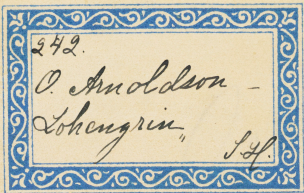 242.
O. Arnoldson –
Lohengrin„
S.H.